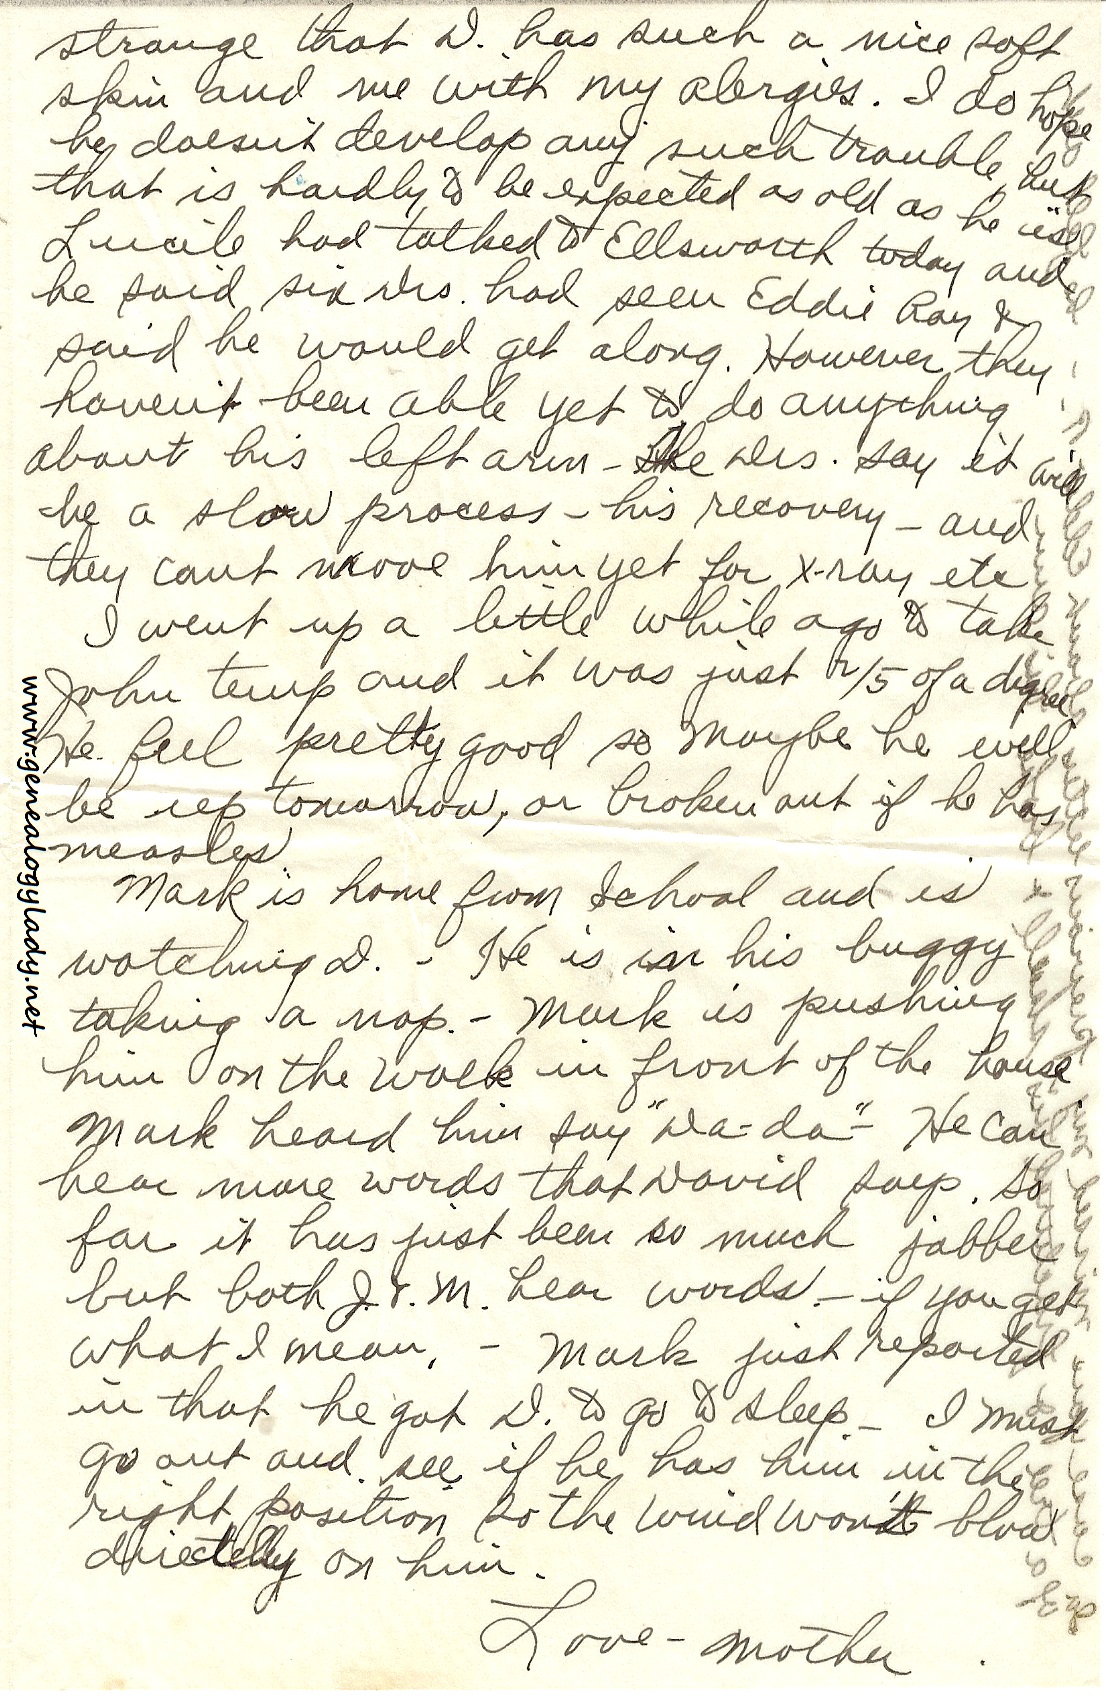 strange that D. has such a nice soft
skin and me with my alergies. I do hope
he doesn't develop any such trouble, but
that is hardly to be expected as old as he is
Lucile had talked to Ellsworth today and
he said six Drs. had seen Eddie Ray &
said he would get along. However they
haven't been able yet to do anything
about his left arm - the Drs. say it will
be a slow process - his recovery - and
they cant move him yet for x-ray etc
I went up a little while ago to take
John temp and it was just 2/5 of a degree
He feel pretty good so maybe he will
be up tomorrow, or broken out if he has
measles
Mark is home from School and is
watching D. - He is in his buggy
taking a nap. - Mark is pushing
him on the walk in front of the house
Mark heard him say "Da-da" - He can
hear more words that David says. So
far it has just been so much jabber
but both J. & M. hear words - if you get
what I mean. - Mark just reported
in that he got D. to go to sleep - I must
go out and see if he has him in the
right position so the wind won't blow
directelly on him.
Love - Mother
www.genealogylady.net